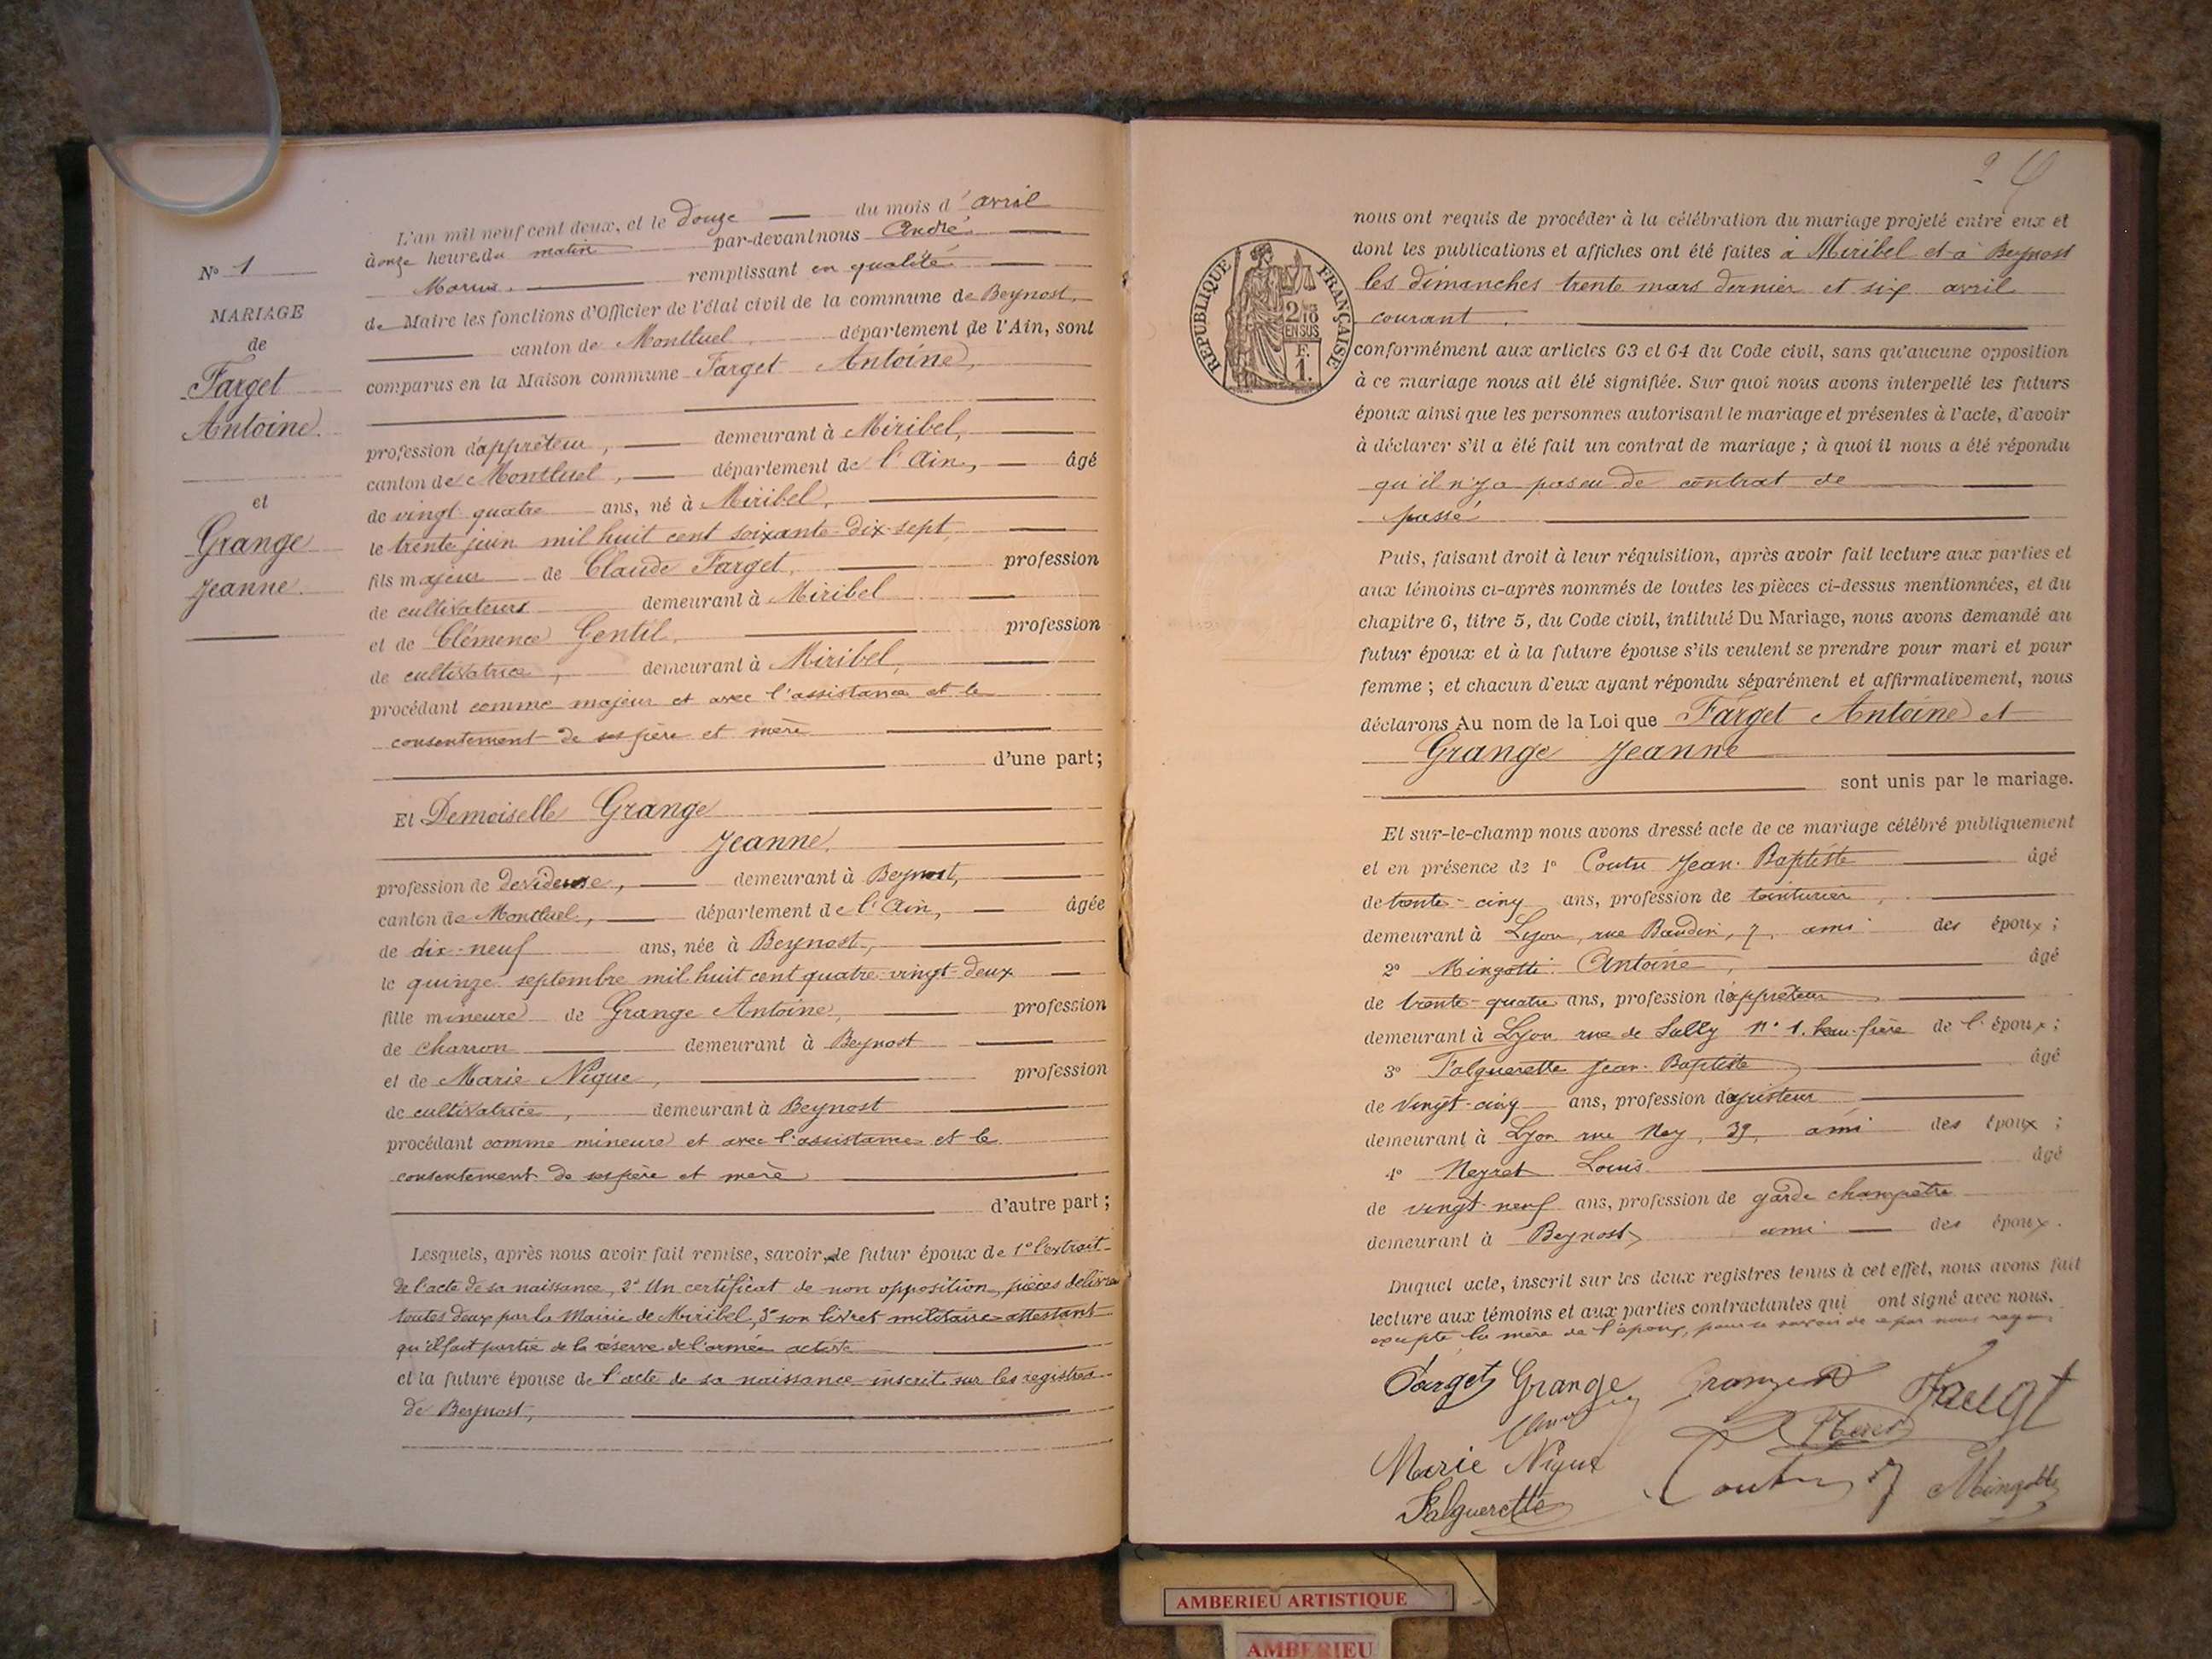 N° 1
MARIAGE
de
Farget
Antoine.
et
Grange
Jeanne.
L'an mil neuf cent deux, et le Douze du mois d'avril
à onze heures du matin par-devant nous André
Marius, remplissant en qualité
de Maire les fonctions d'Officier de l'état civil de la commune de Beynost,
canton de Montluel département de l'Ain, sont
comparus en la Maison commune Farget Antoine,
profession d'apprêteur, demeurant à Miribel,
canton de Montluel, département de l'Ain, âgé
de vingt quatre ans, né à Miribel,
le trente juin mil huit cent soixante-dix-sept
fils majeur de Claude Farget, profession
de cultivateurs demeurant à Miribel
et de Clémence Gentil, profession
de cultivatrice, demeurant à Miribel,
procédant comme majeur et avec l'assistance et le
consentement de ses père et mère
d'une part;
Et Demoiselle Grange
Jeanne,
profession de devideuse, demeurant à Beynost,
canton de Montluel, département de l'Ain, âgée
de dix-neuf ans, née à Beynost,
le quinze septembre mil huit cent quatre-vingt-deux
fille mineure de Grange Antoine, profession
de charron demeurant à Beynost
et de Marie Nique, profession
de cultivatrice, demeurant à Beynost
procédant comme mineure et avec l'assistance et le
consentement de ses père et mère
d'autre part;
Lesquels, après nous avoir fait remise, savoir, le futur époux de 1° l'extrait
de l'acte de sa naissance, 2° Un certificat de non opposition, pièces délivrées
toutes deux par la Mairie de Miribel, 3° son livret militaire attestant
qu'il fait partie de la réserve de l'armée active
et la future épouse de l'acte de sa naissance inscrit sur les registres
de Beynost,
2
REPUBLIQUE FRANÇAISE
2/10
EN SUS
F.
1.
nous ont requis de procéder à la célébration du mariage projeté entre eux et
dont les publications et affiches ont été faites à Miribel et à Beynost
les dimanches trente mars dernier et six avril
courant.
conformément aux articles 63 et 64 du Code civil, sans qu'aucune opposition
à ce mariage nous ait été signifiée. Sur quoi nous avons interpellé les futurs
époux ainsi que les personnes autorisant le mariage et présentes à l'acte, d'avoir
à déclarer s'il a été fait un contrat de mariage ; à quoi il nous a été répondu
qu'il n'y a pas eu de contrat de
passé
Puis, faisant droit à leur réquisition, après avoir fait lecture aux parties et
aux témoins ci-après nommés de toutes les pièces ci-dessus mentionnées, et du
chapitre 6, titre 5, du Code civil, intitulé Du Mariage, nous avons demandé au
futur époux et à la future épouse s'ils veulent se prendre pour mari et pour
femme ; et chacun d'eux ayant répondu séparément et affirmativement, nous
déclarons Au nom de la Loi que Farget Antoine et
Grange Jeanne
sont unis par le mariage.
Et sur-le-champ nous avons dressé acte de ce mariage célébré publiquement
et en présence de 1° Coutu Jean-Baptiste âgé
de trente-cinq ans, profession de teinturier,
demeurant à Lyon, rue Baudin, 7, ami des époux ;
2° Mingotti Antoine, âgé
de trente-quatre ans, profession d'apprêteur,
demeurant à Lyon rue de Sully N° 1. beau-frère de l'époux ;
3° Falguerette Jean-Baptiste âgé
de vingt-cinq ans, profession d'ajusteur
demeurant à Lyon rue Ney, 39, ami des époux ;
4° Neyret Louis âgé
de vingt-neuf ans, profession de garde champêtre
demeurant à Beynost, ami des époux.
Duquel acte, inscrit sur les deux registres tenus à cet effet, nous avons fait
lecture aux témoins et aux parties contractantes qui ont signé avec nous.
excepté la mère de l'époux, pour ne savoir de ce par nous requis
Farget Grange Grange A Farget
Marie Nique Coutu Mingotti
Falguerette
AMBERIEU ARTISTIQUE
AMBERIEU